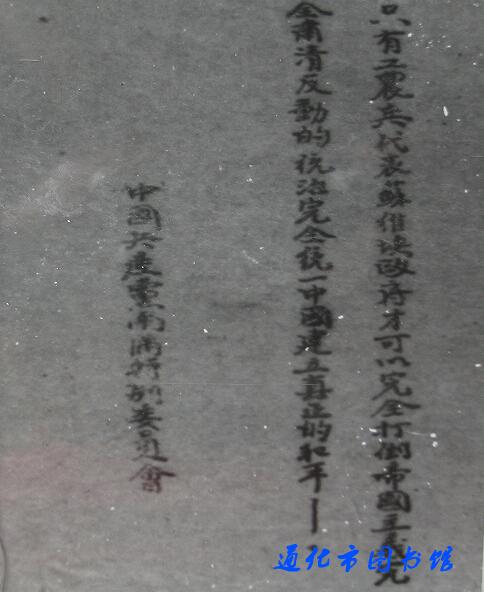 只有工農兵代表蘇維埃政府才可以完全打倒帝國主義完
全肅清反動的統治完全統一中國建立真正的和平——
中國共產黨南滿特別委員會
通化市图书馆